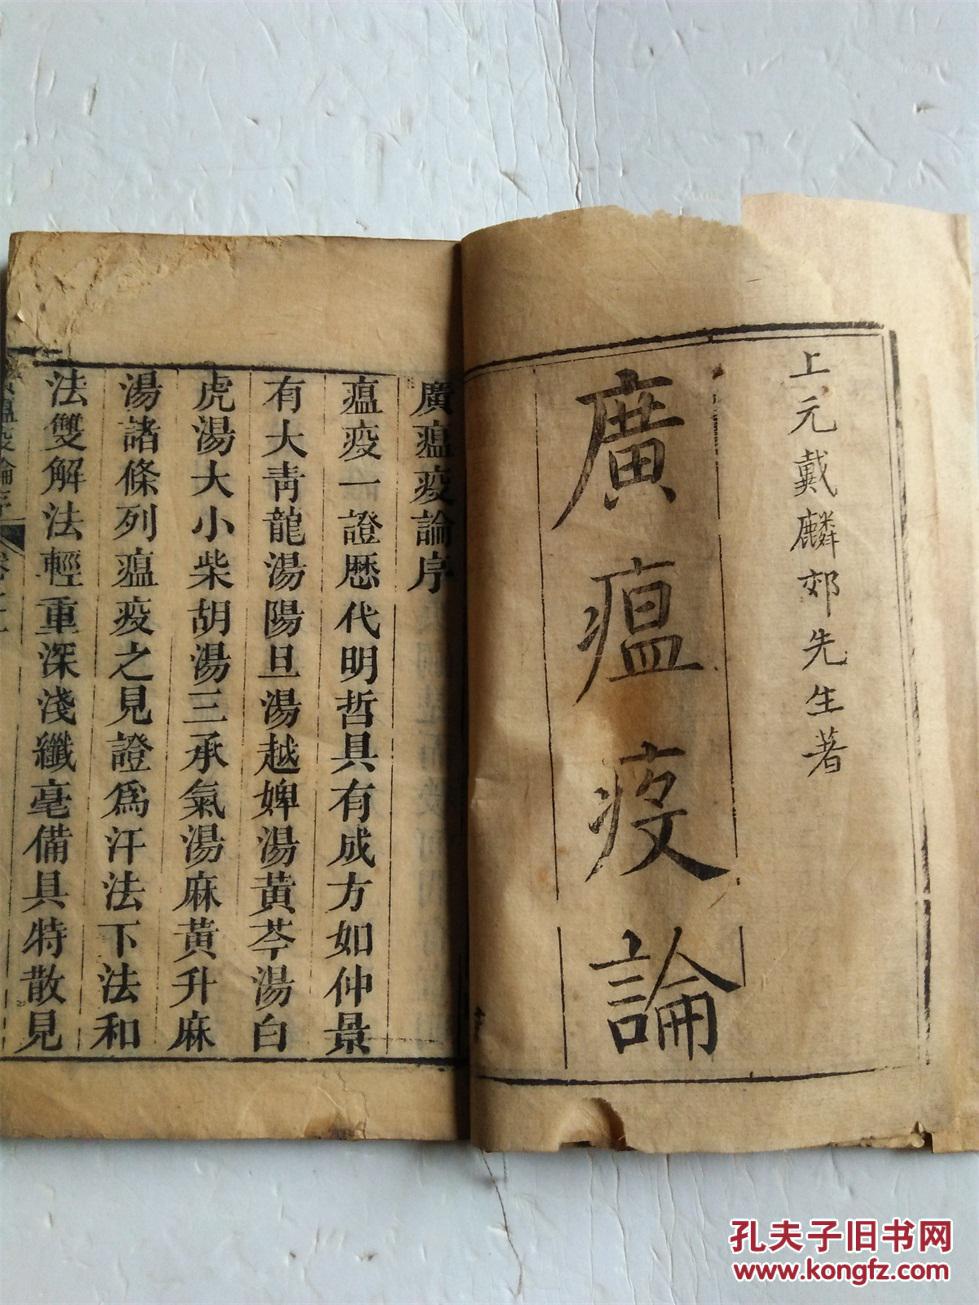 上元戴麟郊先生著
廣瘟疫論
廣瘟疫論序
瘟疫一證歷代明哲具有成方如仲景
有大靑龍湯陽旦湯越婢湯黃芩湯白
虎湯大小柴胡湯三承氣湯麻黃升麻
湯諸條列瘟疫之見證爲汗法下法和
法雙解法輕重深淺纖毫備具特散見
瘟疫論序
孔夫子旧书网
www.kongfz.com